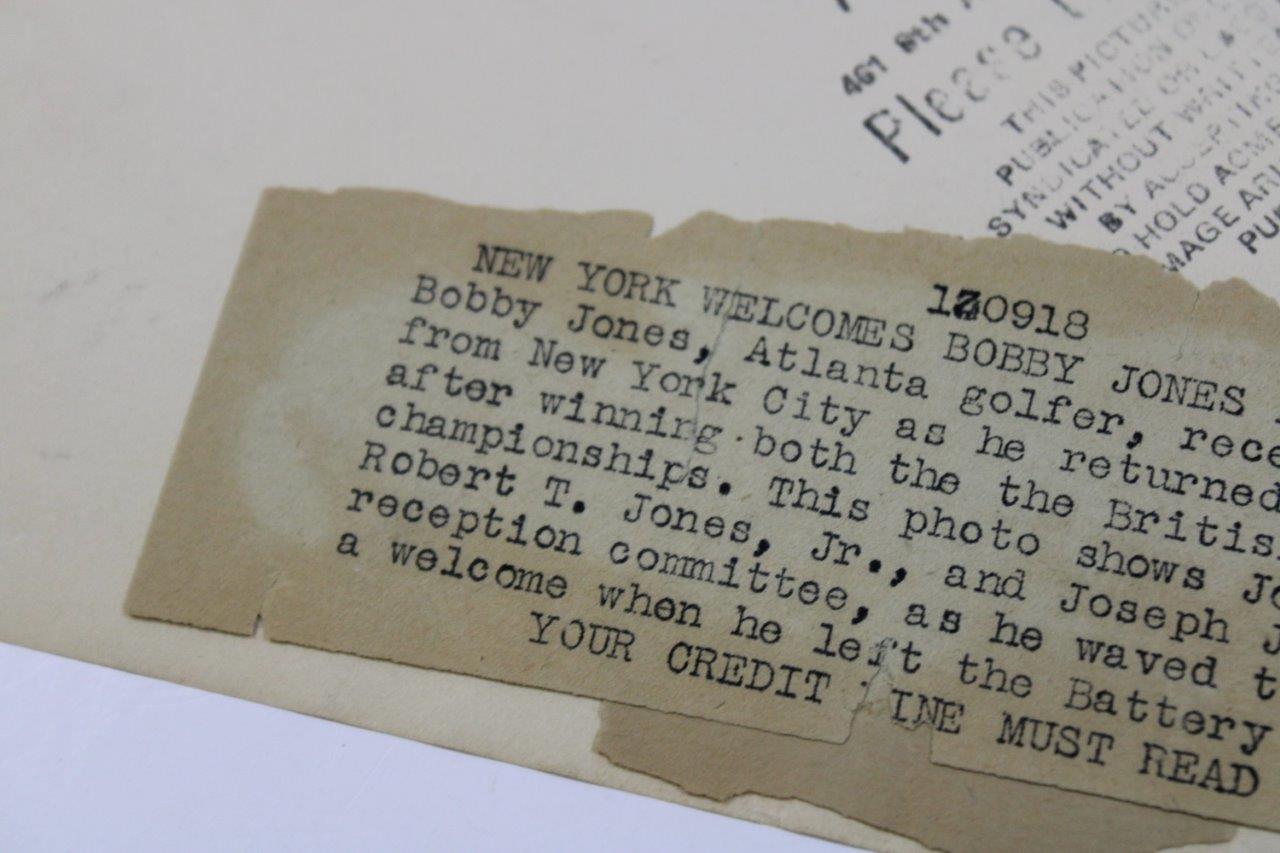 461 8th
Please
THIS PICTUR
PUBLICATION
SYNDICATED OR
WITHOUT WRITTE
BY ACCEPTING
HOLD ACME
MAGE ARI
PU
NEW YORK WELCOMES BOBBY JONES
120918
Bobby Jones, Atlanta golfer, rece
from New York City as he returned
after winning both the the Britis
championships. This photo shows Jo
Robert T. Jones, Jr., and Joseph J
reception committee, as he waved t
a welcome when he left the Battery
YOUR CREDIT INE MUST READ